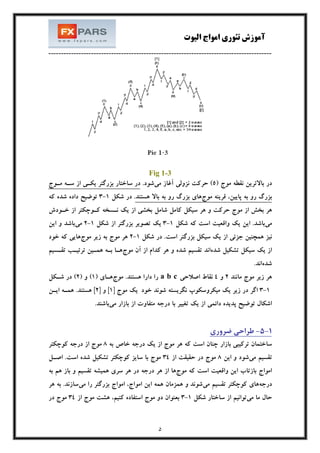 FX PARS
www.fxpars.com
آموزش تئوری امواج الیوت
[1] and [2] = 2 waves
(1), (2), (3), (4), (5), (a), (b), (c) = 8 waves
1, 2, 3, 4, 5, A, B, C, etc. = 34 waves
Pic 1-3
Fig 1-3
در بالاترین نقطه موج (٥) حرکت نزولی آغاز می‌شود. در ساختار بزرگتر یکی از سه موج
بزرگ رو به پایین، قرینه موج‌های بزرگ رو به بالا هستند. در شکل ١-٣ توضیح داده شده که
هر بخش از موج حرکت و هر سیکل کامل شامل بخشی از یک نسخه کوچکتر از خودش
می‌باشد. این یک واقعیت است که شکل ١-٣ یک تصویر بزرگتر از شکل ١-٢ می‌باشد و این
نیز همچنین جزئی از یک سیکل بزرگتر است. در شکل ١-٢ هر موج به زیر موج‌هایی که خود
از یک سیکل تشکیل شده‌اند تقسیم شده و هر کدام از آن موج‌ها به همین ترتیب تقسیم
شده‌اند.
هر زیر موج مانند ٢ و ٤ نقاط اصلاحی a b c را دارا هستند. موج‌های (١) و (٢) در شکل
١-٣ اگر در زیر یک میکروسکوپ نگریسته شوند خود یک موج [١] و [٢] هستند. همه این
اشکال توضیح پدیده دائمی از یک تغییر با درجه متفاوت از بازار می‌باشند.
١-٥- طراحی ضروری
ساختمان ترکیبی بازار چنان است که هر موج از یک درجه خاص به ٨ موج از درجه کوچکتر
تقسیم می‌شود و این ٨ موج در حقیقت از ٣٤ موج با سایز کوچکتر تشکیل شده است. اصل
امواج بازتاب این واقعیت است که موج‌ها از هر درجه در هر سری همیشه تقسیم و باز هم به
درجه‌های کوچکتر تقسیم می‌شوند و همزمان همه این امواج، امواج بزرگتر را می‌سازند. به هر
حال ما می‌توانیم از ساختار شکل ١-٣ بعنوان دو موج استفاده کنیم، هشت موج از ٣٤ موج در
٢